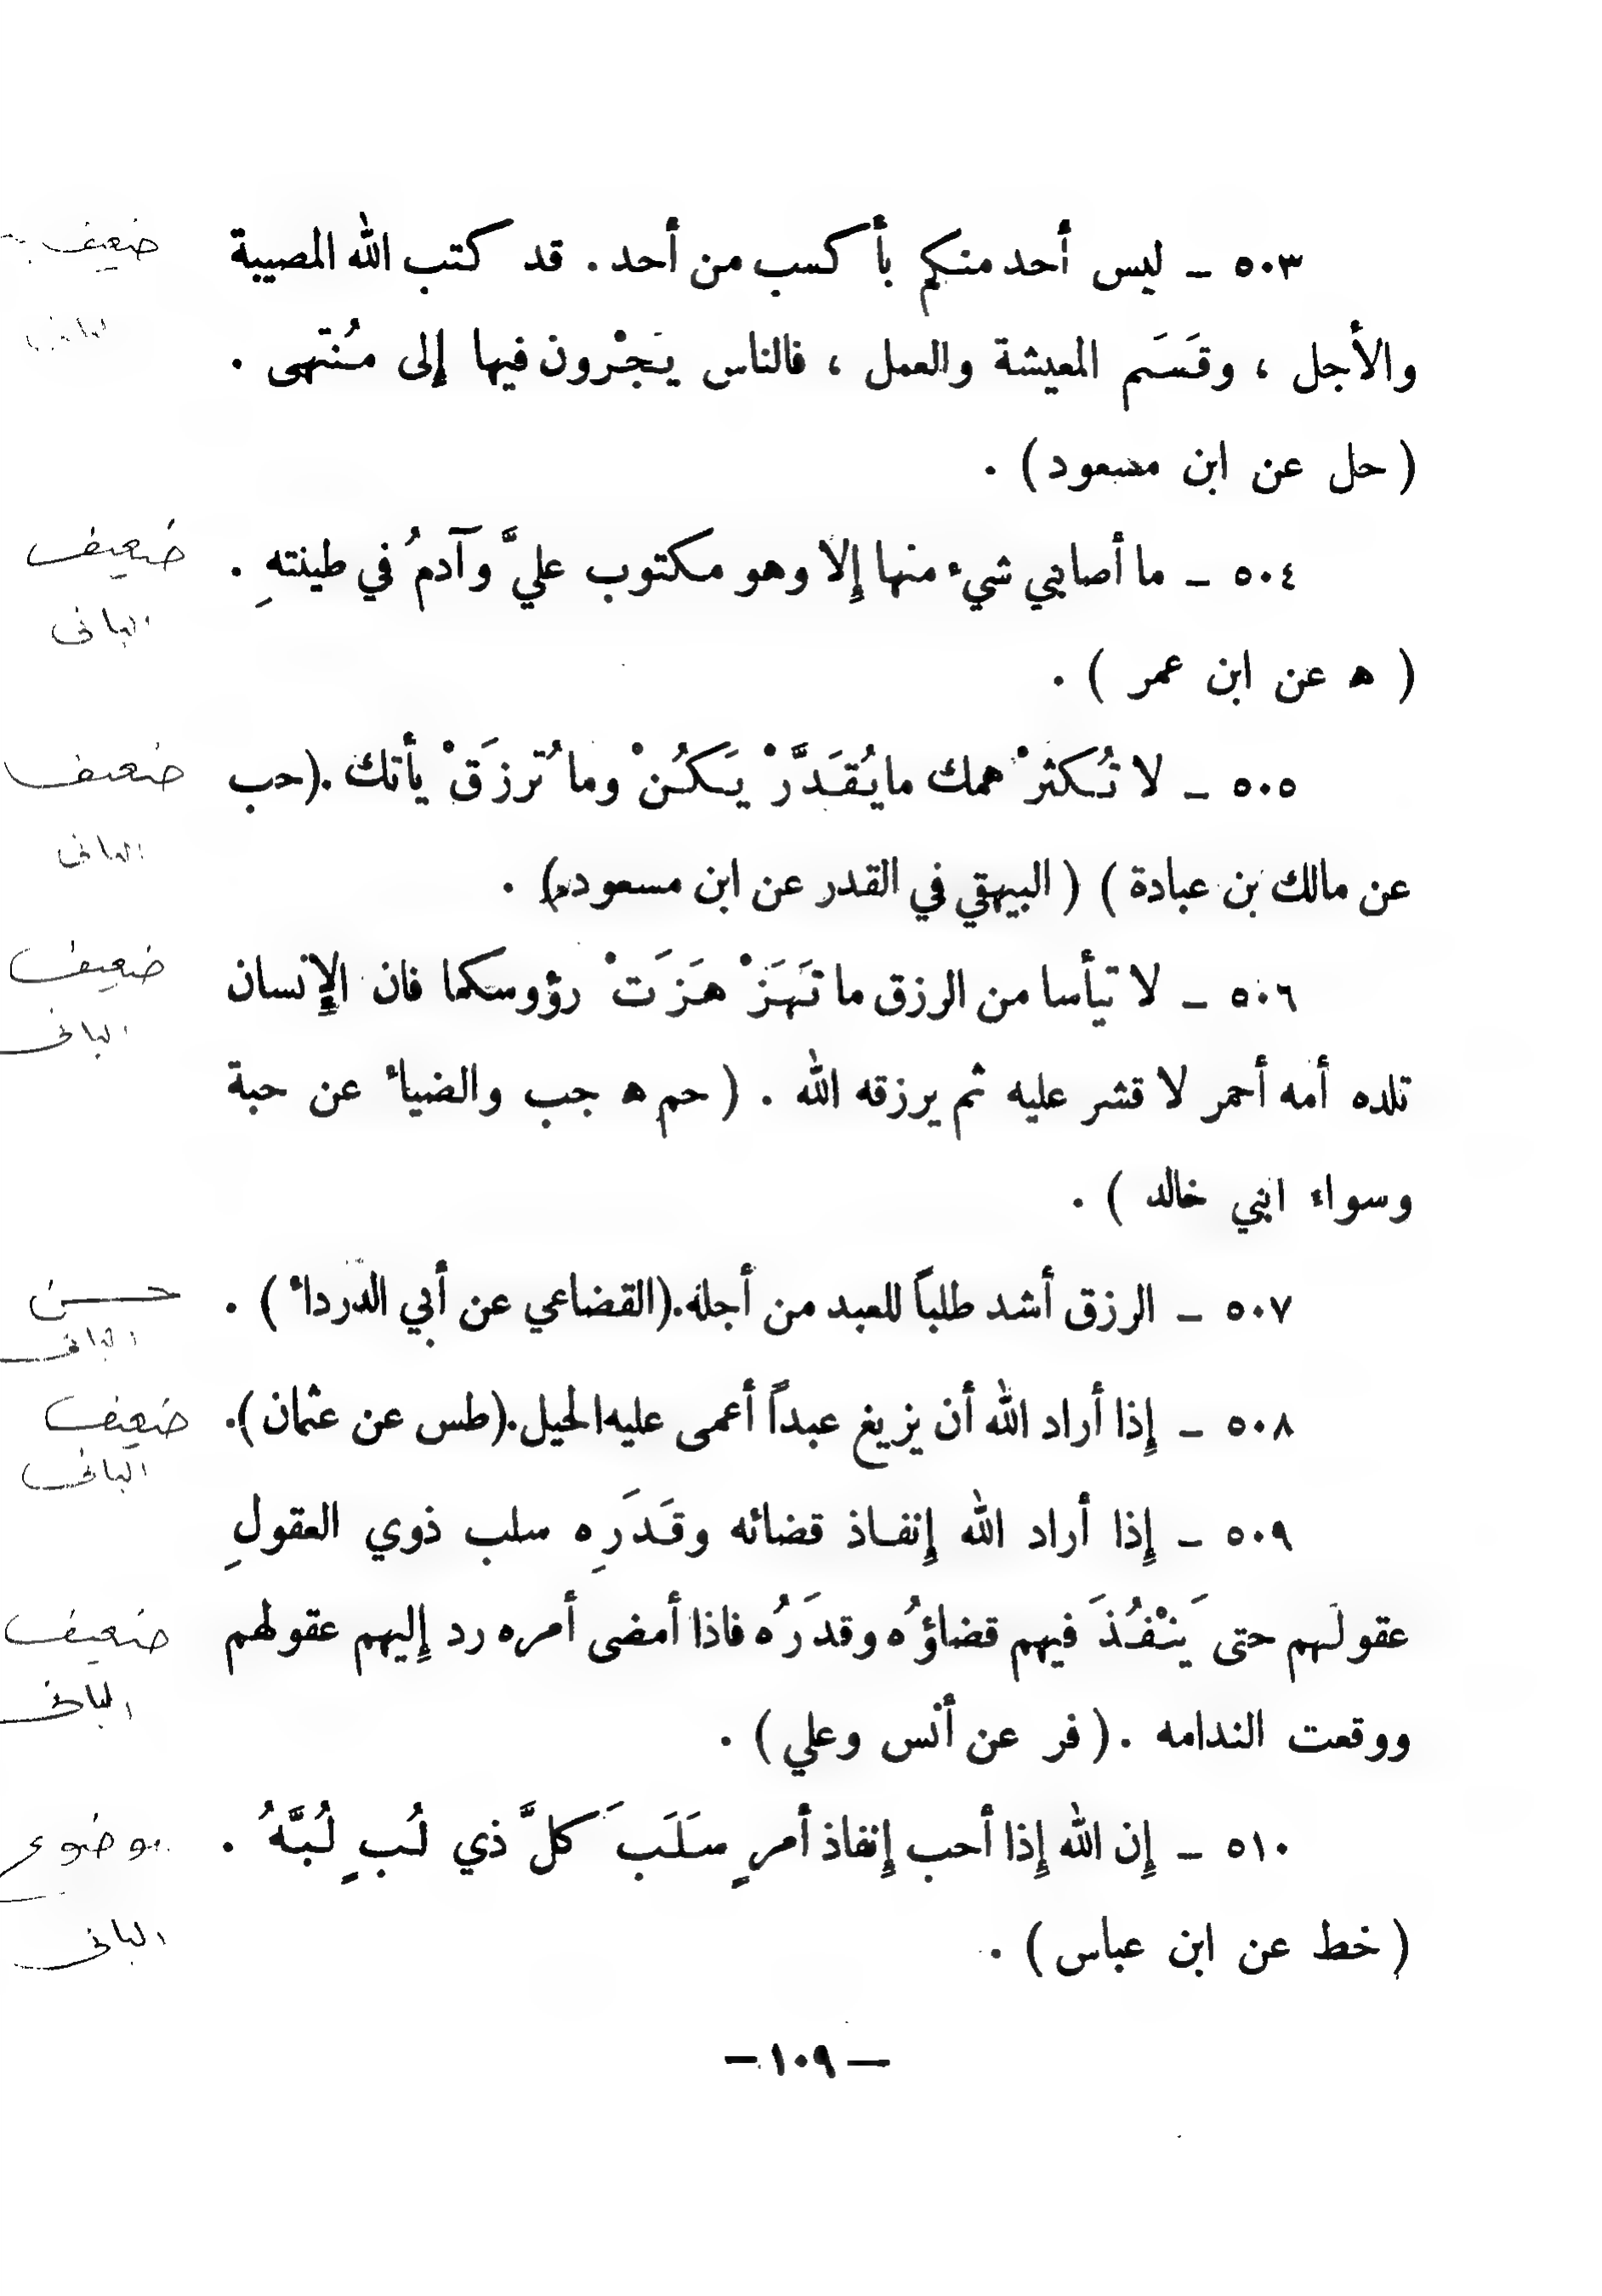 ٥٠٣ ـ ليس أحد منكم بأكسب من أحد . قد كتب الله المصيبة
ضعيف
والأجل ، وقَسَم المعيشة والعمل ، فالناس يَجْرون فيها إلى مُنتهى .
( حل عن ابن مسعود ) .
٥٠٤ ـ ما أصابني شيء منها إلا وهو مكتوب عليَّ وآدمُ في طينتهِ .
ضعيف
البانى
( ه عن ابن عمر ) .
٥٠٥ ـ لا تُكثرْ همك ما يُقَدَّرْ يَكُنْ وما تُرزَقْ يأتك .(حب
ضعيف
البانى
عن مالك بن عبادة ) ( البيهقي في القدر عن ابن مسعود ) .
٥٠٦ ـ لا تيأسا من الرزق ما تَهَزْهَزَتْ رؤوسكما فان الإنسان
ضعيف
البانى
تلده أمه أحمر لا قشر عليه ثم يرزقه الله . ( حم ه حب والضياء عن حبة
وسواء ابني خالد ) .
٥٠٧ ـ الرزق أشد طلباً للعبد من أجله.(القضاعي عن أبي الدرداء ) .
حسن
البانى
٥٠٨ ـ إذا أراد الله أن يزيغ عبداً أعمى عليه الحيل.(طس عن عثمان ).
ضعيف
البانى
٥٠٩ ـ إذا أراد الله إنفاذ قضائه وقَدَرِه سلب ذوي العقولِ
عقولَهم حتى يَنْفُذَ فيهم قضاؤُه وقدَرُه فاذا أمضى أمره رد إليهم عقولهم
ضعيف
البانى
ووقعت الندامه . ( فر عن أنس وعلي ) .
٥١٠ ـ إن الله إذا أحب إنفاذ أمرٍ سَلَبَ كلَّ ذي لُبٍ لُبَّهُ .
موضوع
البانى
( خط عن ابن عباس ) .
— ١٠٩ —